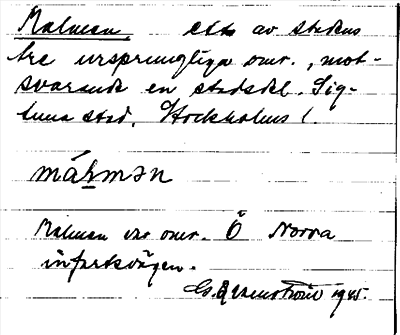 Malmen, ett av stadens
tre ursprungliga omr., mot-
svarande en stadsdel. Sig-
tuna stad, Stockholms l.
Malmen var omr. Ö Norra
infartsvägen.
1945.